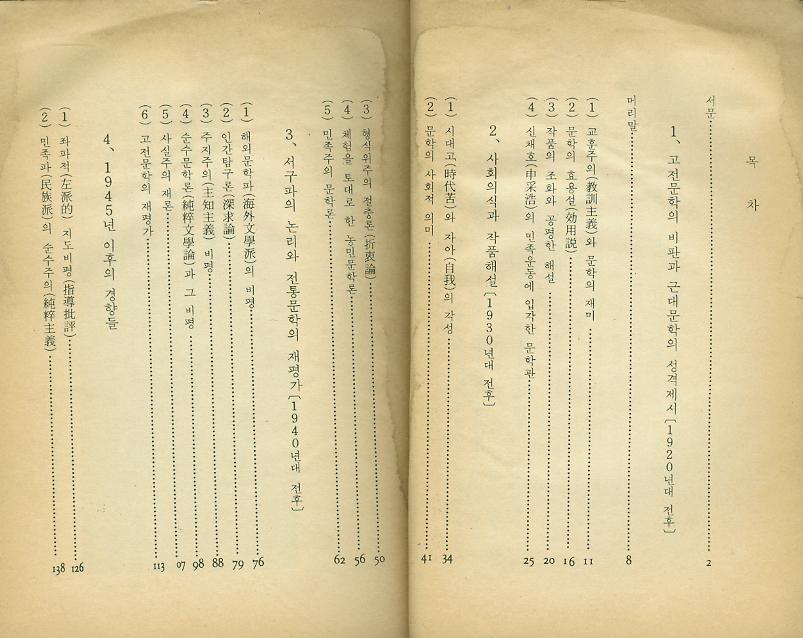 목 차
서문 2
1、고전문학의 비판과 근대문학의 성격제시〔1920년대 전후〕
머리말 8
(1) 교훈주의(敎訓主義)와 문학의 재미 11
(2) 문학의 효용설(効用説) 16
(3) 작품의 조화와 공평한 해설 20
(4) 신채호(申采浩)의 민족운동에 입각한 문학관 25
2、사회의식과 작품해설〔1930년대 전후〕
(1) 시대고(時代苦)와 자아(自我)의 각성 34
(2) 문학의 사회적 의미 41
(3) 형식위주의 절충론(折衷論) 50
(4) 체험을 토대로 한 농민문학론 56
(5) 민족주의 문학론 62
3、서구파의 논리와 전통문학의 재평가〔1940년대 전후〕
(1) 해외문학파(海外文學派)의 비평 76
(2) 인간탐구론(深求論) 79
(3) 주지주의(主知主義) 비평 88
(4) 순수문학론(純粹文學論)과 그 비평 98
(5) 사실주의 재론 07
(6) 고전문학의 재평가 113
4、1945년 이후의 경향들
(1) 좌파적(左派的) 지도비평(指導批評) 126
(2) 민족파(民族派)의 순수주의(純粹主義) 138